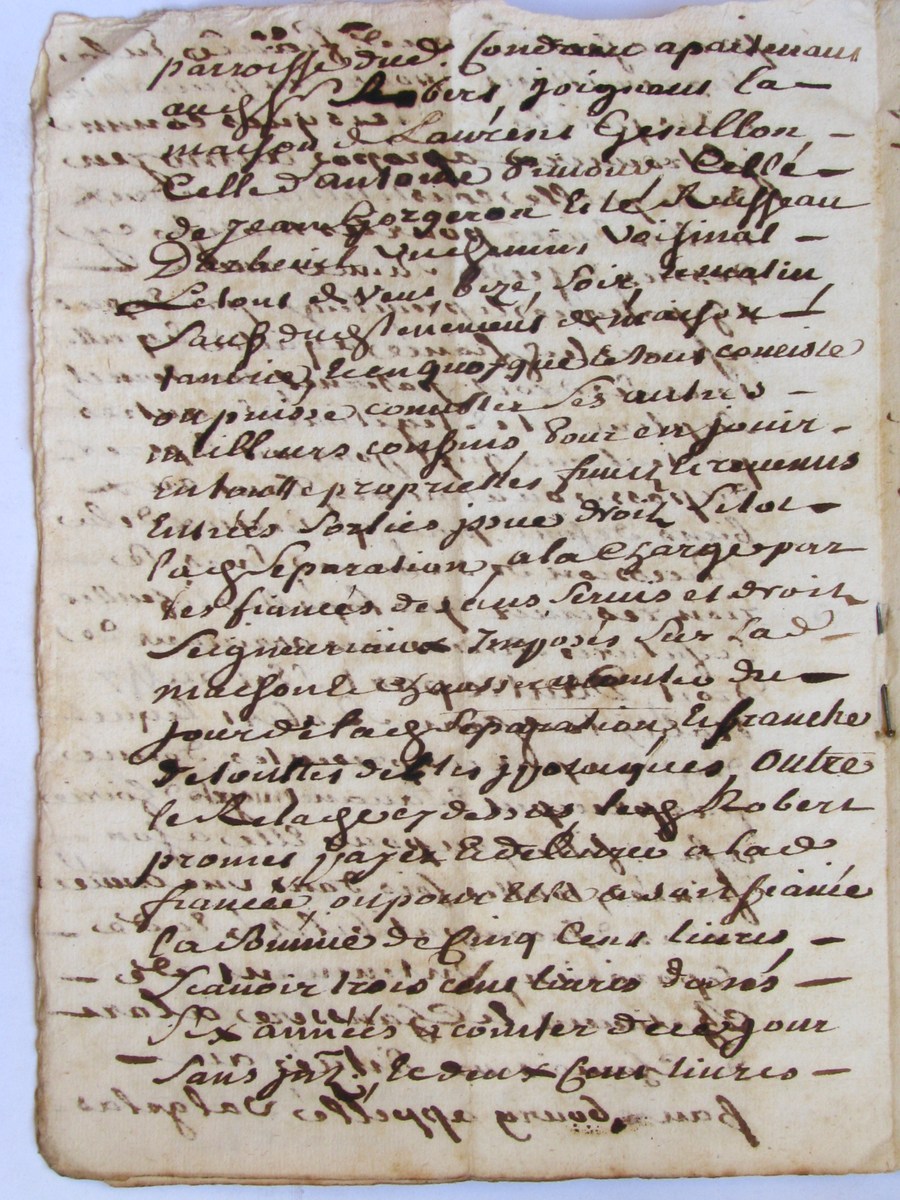 parroisse dud. Condom apartenant
aud Sr Robert joignant la
maison de Laurent Genillon
Celle d'antoine Celle
de jean Gorgeron et le Ruisseau
un chemin voisinal
Le tout de vent bize, soir, et matin
Sauf dud tenement de maison
et en quoy que le tout conciste
ou puisse consister ses autres
meilleurs confins pour en jouir
en toutte proprietté fruits et revenus
Entrées sorties issue droits sitot
lad Separation a la charge par
les fiancés de sans servis et droits
Seigneuriaux Imposés sur lad
maison et a conter du
jour de lad Separation, et franche
de touttes dettes ypotecques, Outre
le Relache cy dessus led Robert
promet payer et delivrer a lad
fiancée, ou pour elle a son fiancé
la Somme de Cinq Cent livres
Scavoir trois cent livres dans
Six années a conter de ce jour
Sans jnt. et deux Cent livres